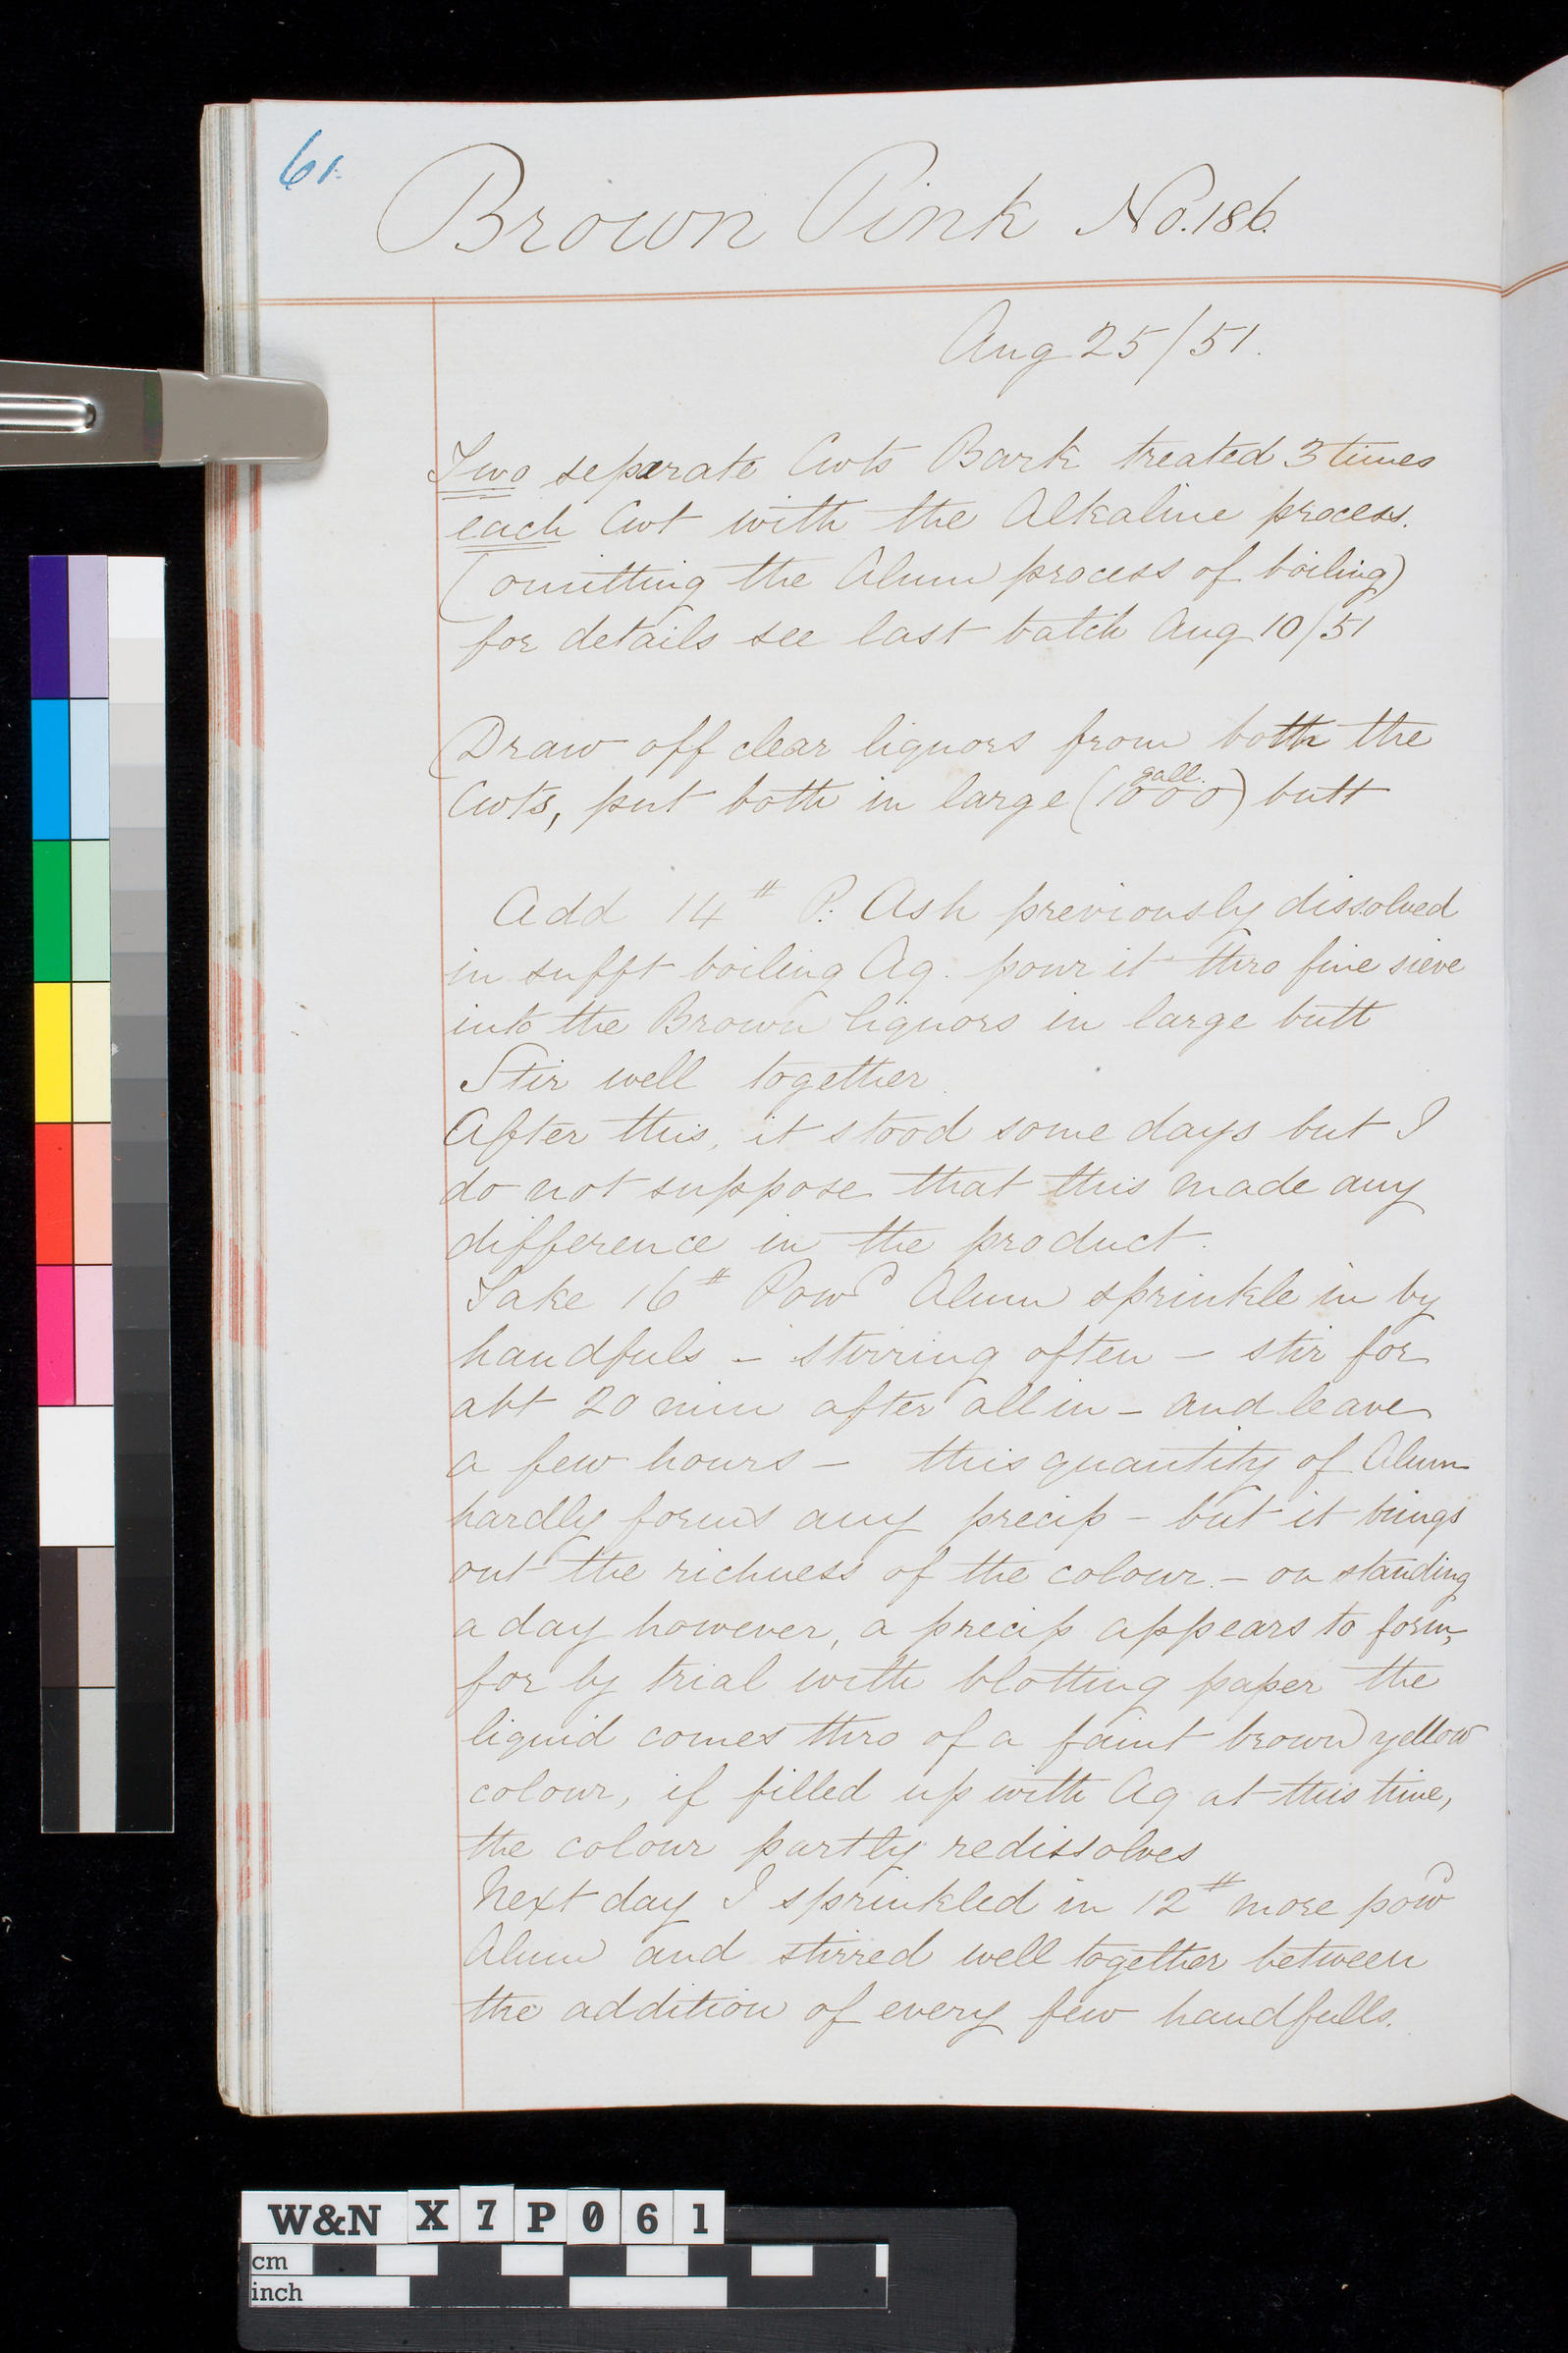 61.
Brown Pink No. 186.
Aug 25/51.
Two separate Cwts Bark treated 3 times
each Cwt with the Alkaline process.
(omitting the Alum process of boiling)
for details see last batch Aug 10/51
Draw off clear liquors from both the
Cwts, put both in large (1000 gall.) butt
Add 14# P. Ash previously dissolved
in sufft boiling Aq. pour it thro fine sieve
into the Brown liquors in large butt
Stir well together.
After this, it stood some days but I
do not suppose that this made any
difference in the product.
Take 16# Powd Alum sprinkle in by
handfuls - stirring often - stir for
abt 20 min after all in - and leave
a few hours - this quantity of Alum
hardly forms any precip - but it brings
out the richness of the colour. - on standing
a day however, a precip appears to form,
for by trial with blotting paper the
liquid comes thro of a faint brown yellow
colour, if filled up with Aq at this time,
the colour partly redissolves
Next day I sprinkled in 12# more powd
Alum and stirred well together between
the addition of every few handfulls.
W&N X7P061
cm
inch